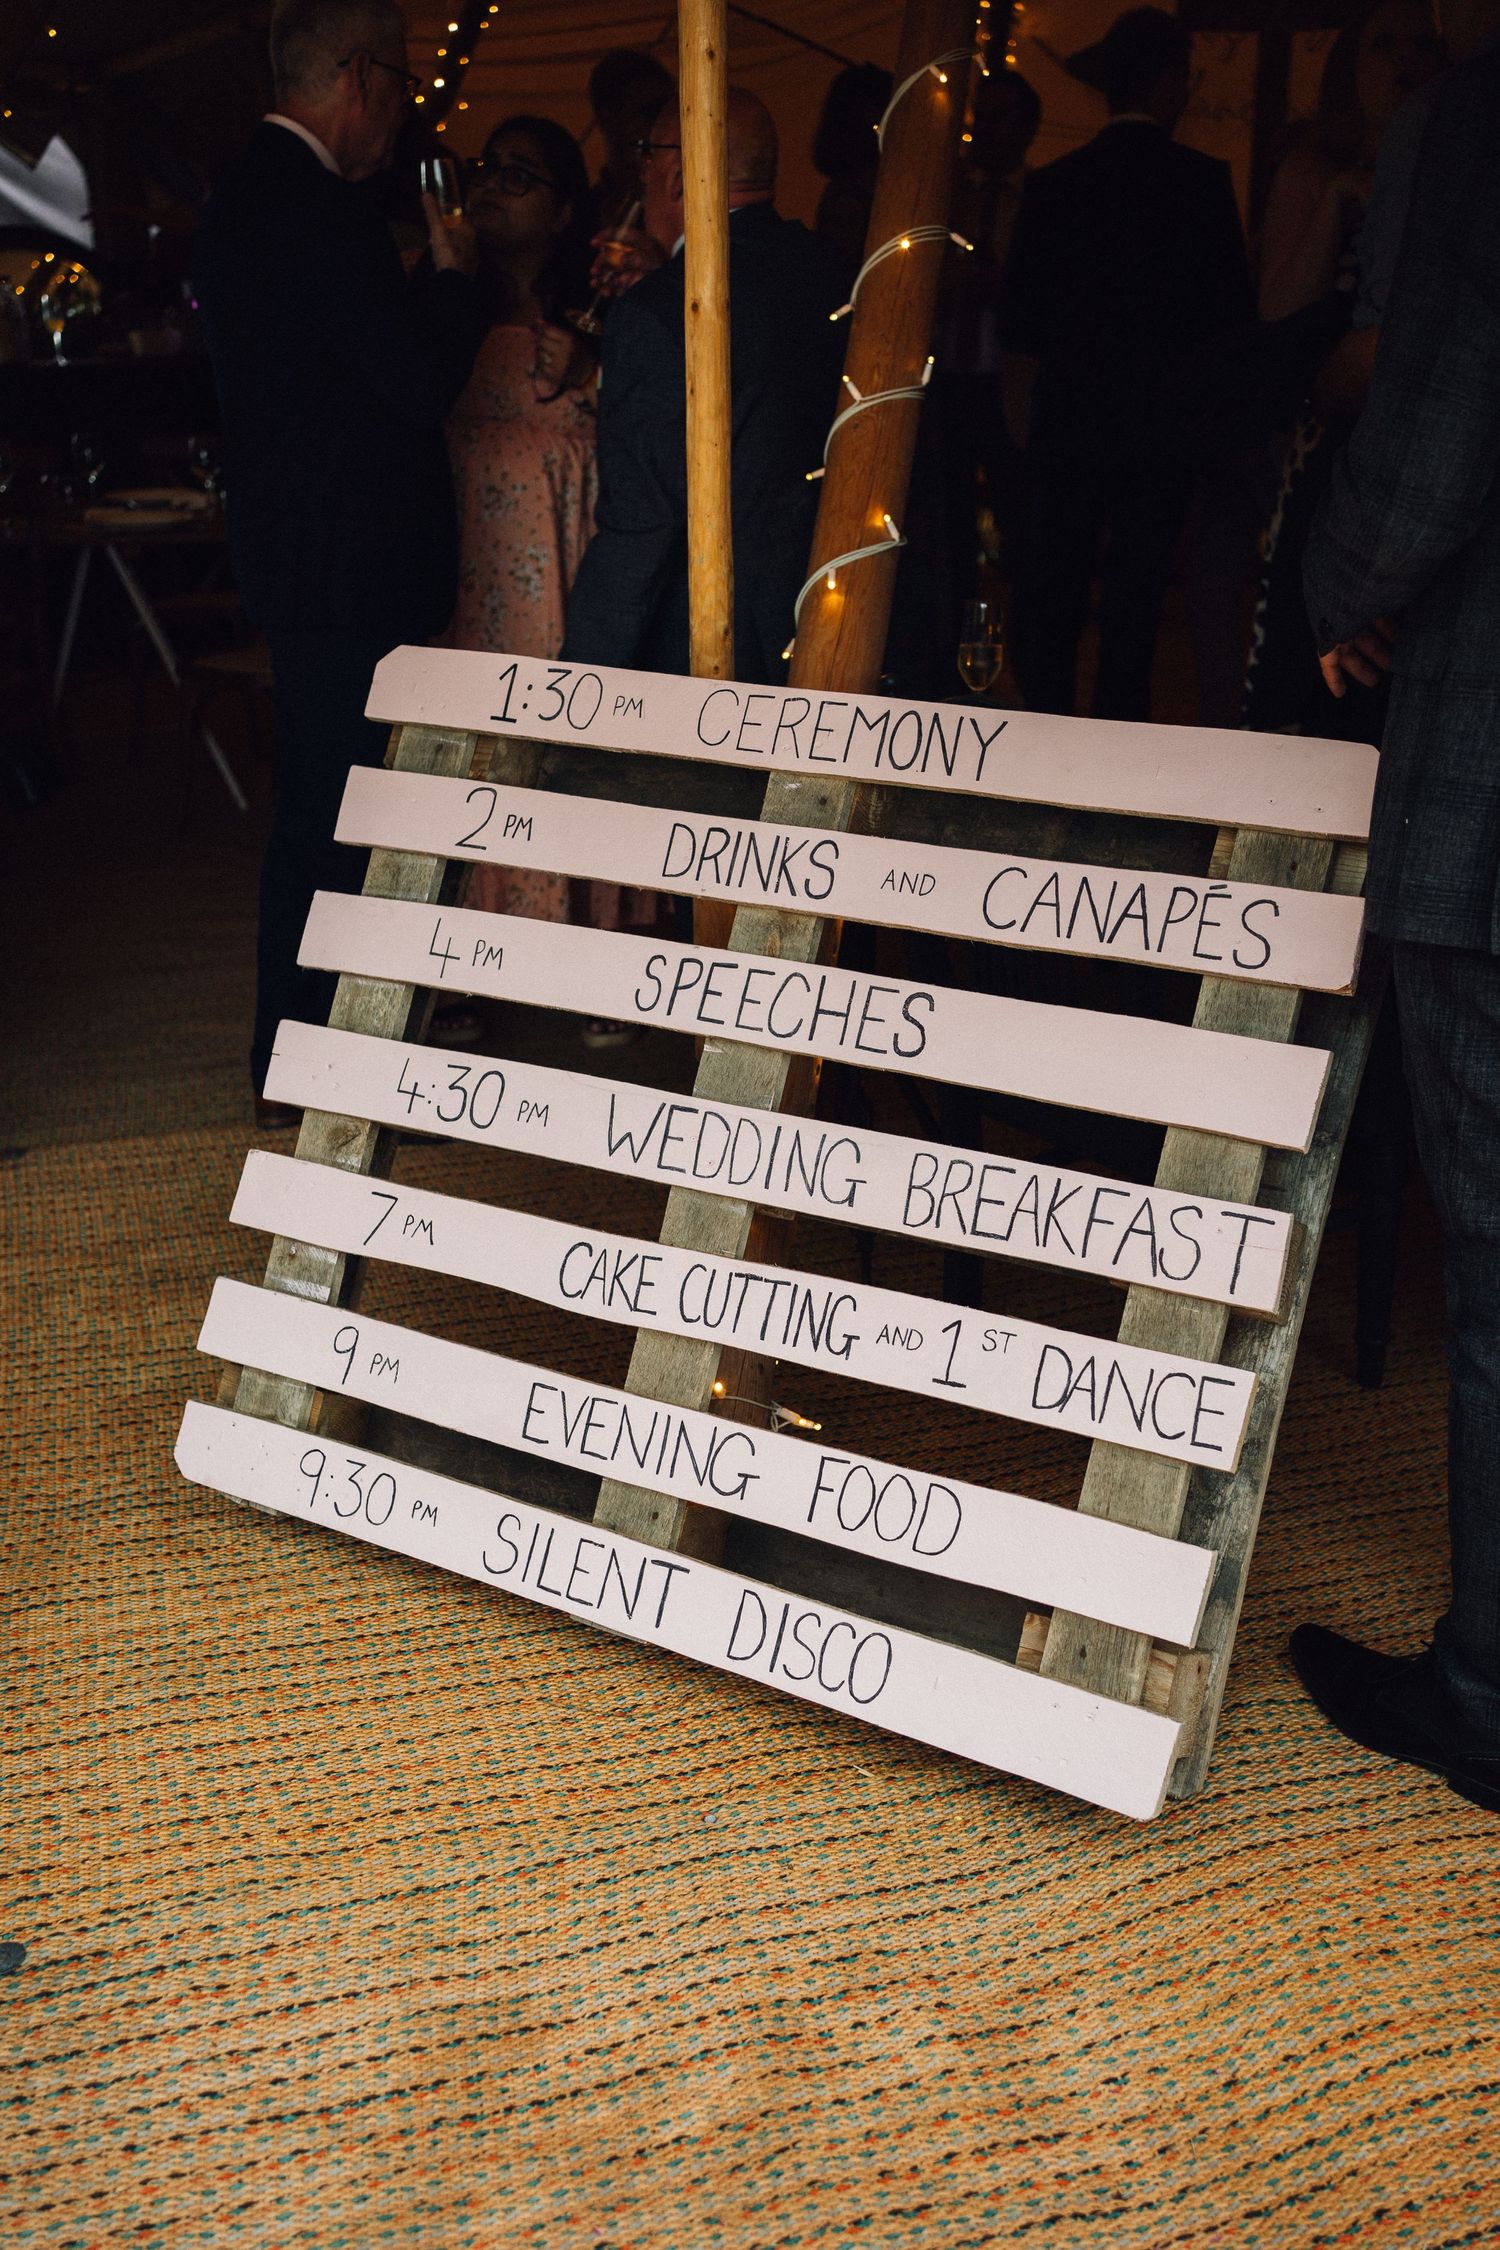 1:30 PM CEREMONY
2 PM DRINKS AND CANAPÉS
4 PM SPEECHES
4:30 PM WEDDING BREAKFAST
7 PM CAKE CUTTING AND 1ST DANCE
9 PM EVENING FOOD
9:30 PM SILENT DISCO